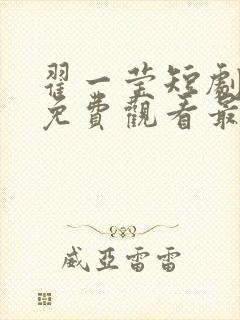 翟一莹短劇
免費觀看最
威亞雷雷